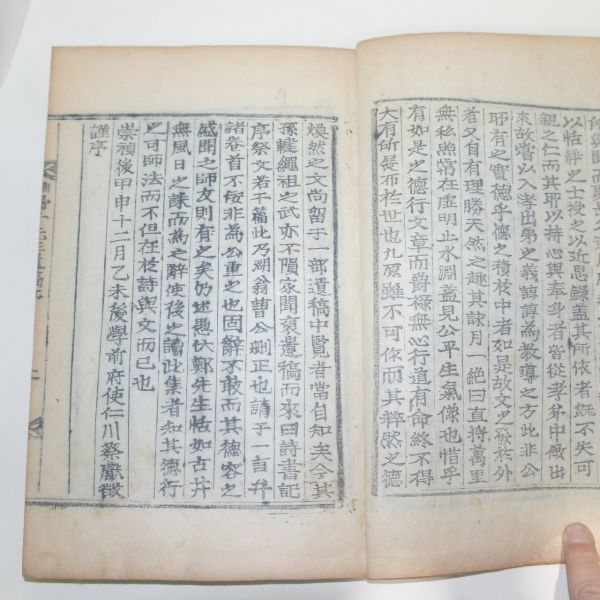 以恬靜之士授之以近思錄盖其所依者經不失可
親之仁而其耶以持心與奉身者皆從孝弟中做出
來故嘗以入孝出弟之義諄諄爲教導之方此非公
耶有之實德乎德之積於中者如是故文之發於外
者又自有理勝天然之趣其詠月一絶曰直持萬里
無私照常在虛明止水淵盖見公平生氣像也惜乎
有如是之德行文章而爵祿無心行道有命終不得
大有所展布於世也九原雖不可作而其粹然之德
煥然之文尚留于一部遺稿中覽者當自知矣今其
孫繩祖之武亦不隕家聞裒遺稿而來曰詩書記
序祭文若干篇此乃湖翁曹公刪正也請于一言弁
諸卷首不佞非爲公重之也固辭不敢而其德容之
盛聞之師友則有之矣仍述愚伏鄭先生恬如古井
無風日之詠而爲之辭使後之讀此集者知其德行
之可師法而不但在於詩與文而已也
崇禎後甲申十二月乙未後學前府使仁川蔡獻徵
謹序